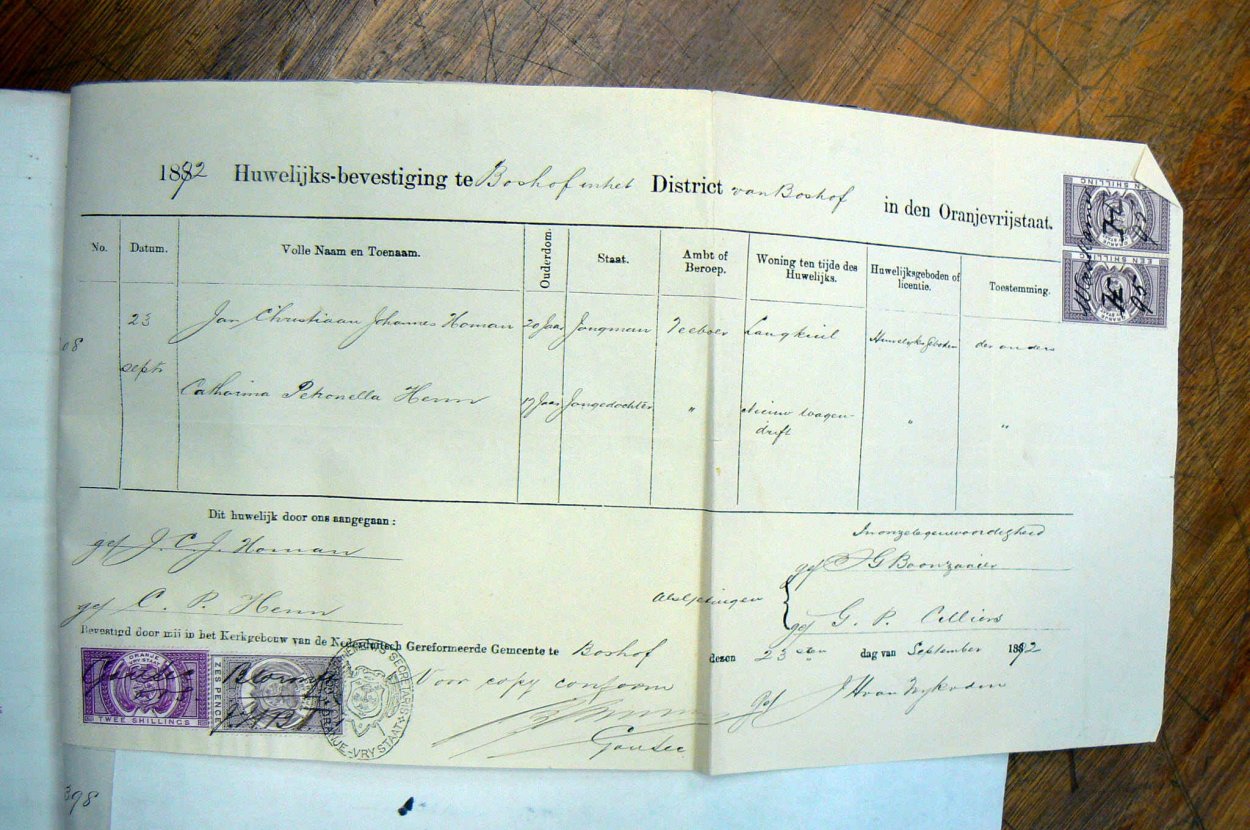 1892 Huwelijks-bevestiging te Boshof in het District van Boshof in den Oranjevrijstaat.
No. Datum. Volle Naam en Toenaam. Ouderdom. Staat. Ambt of Beroep. Woning ten tijde des Huwelijks. Huwelijksgeboden of licentie. Toestemming.
23 Jan Christiaan Johannes Homan 20 Jaar Jongman Veeboer Langkuil Huwelijksgeboden der ouders
08
Sept. Catharina Petronella Henn 17 Jaar Jongedochter " Nieuw Wagen-
drift " "
Dit huwelijk door ons aangegaan:
In onze tegenwoordigheid
get J. C. J. Homan
get G Boonzaaier
Als getuigen
get C. P. Henn
get G. P. Cilliers
Bevestigd door mij in het Kerkgebouw van de Nederduitsch Gereformeerde Gemeente te Boshof dezen 23sten dag van September 1892
Voor copy conform
get
GouSec
EEN SHILLING
EEN SHILLING
95
ORANJE VRY STAAT
TWEE SHILLINGS
GouSec
ZES PENCE
Bloemf
SECRETARIS
ORANJE-VRY STAAT
398